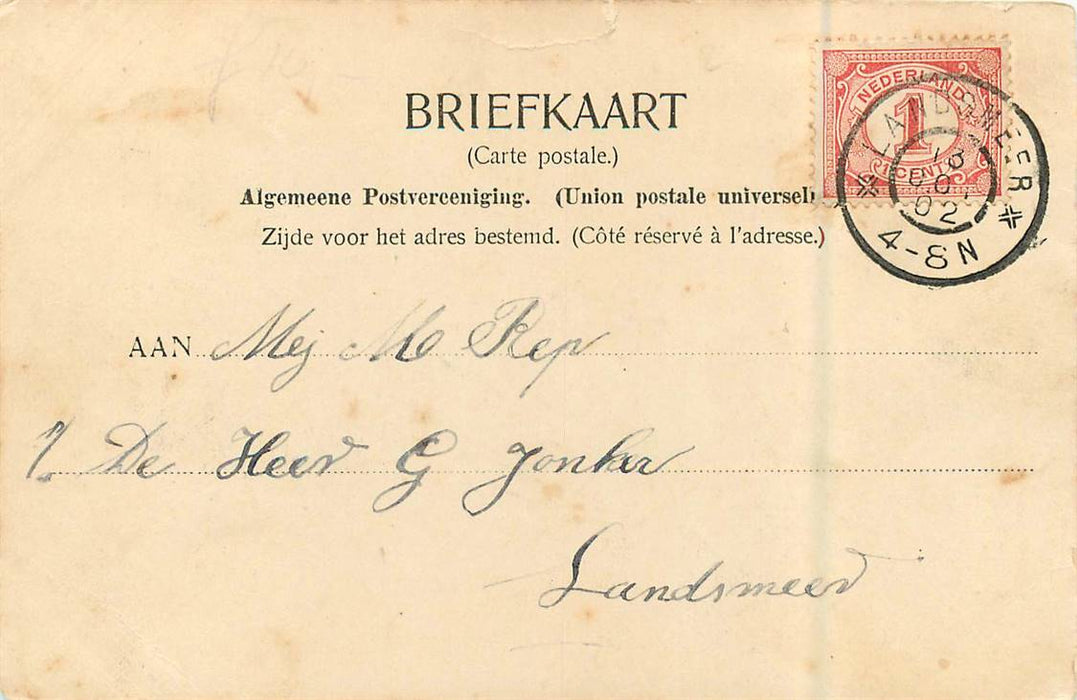 BRIEFKAART
(Carte postale.)
Algemeene Postvereeniging. (Union postale universel
Zijde voor het adres bestemd. (Côté réservé à l'adresse.)
NEDERLAND
1
CENT
LANDSMEER
4-8N
02
AAN Mej M Rep
De Heer G Jonker
Landsmeer